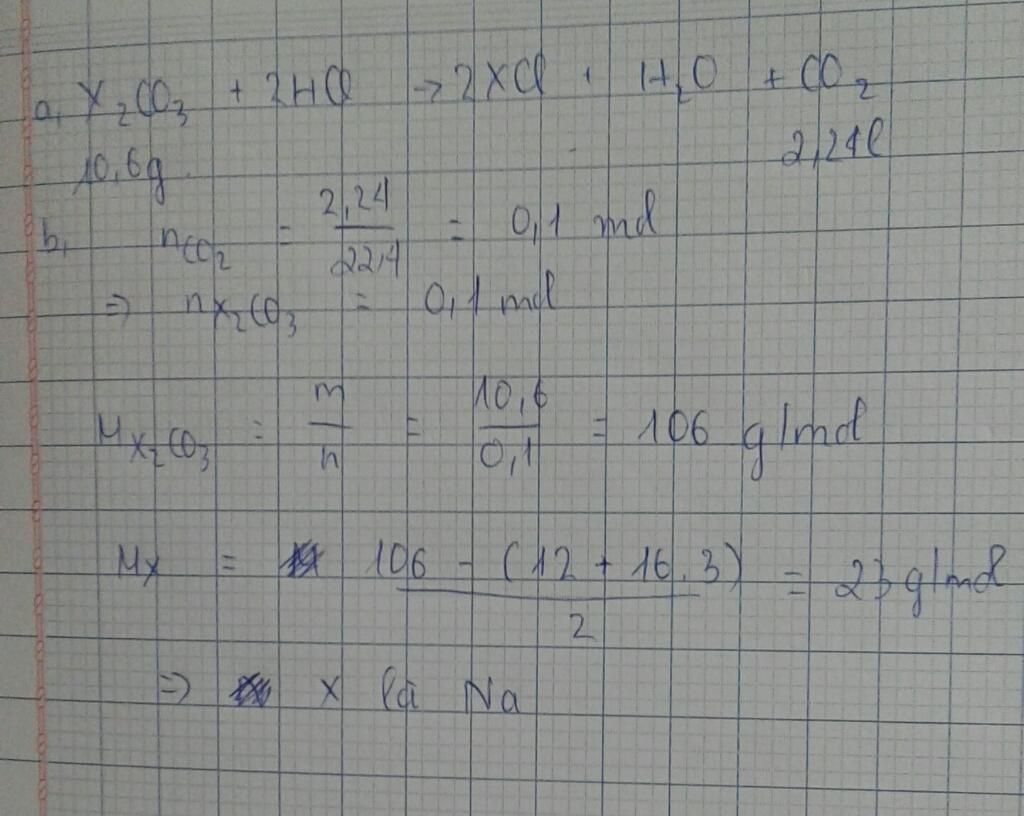 a, X₂CO₃ + 2HCl → 2XCl + H₂O + CO₂
10,6g 2,24l
b, nCO₂ = 2,24 / 22,4 = 0,1 mol
⇒ nX₂CO₃ = 0,1 mol
MX₂CO₃ = m / n = 10,6 / 0,1 = 106 g/mol
MX = 106 - (12 + 16.3) / 2 = 23 g/mol
⇒ X là Na